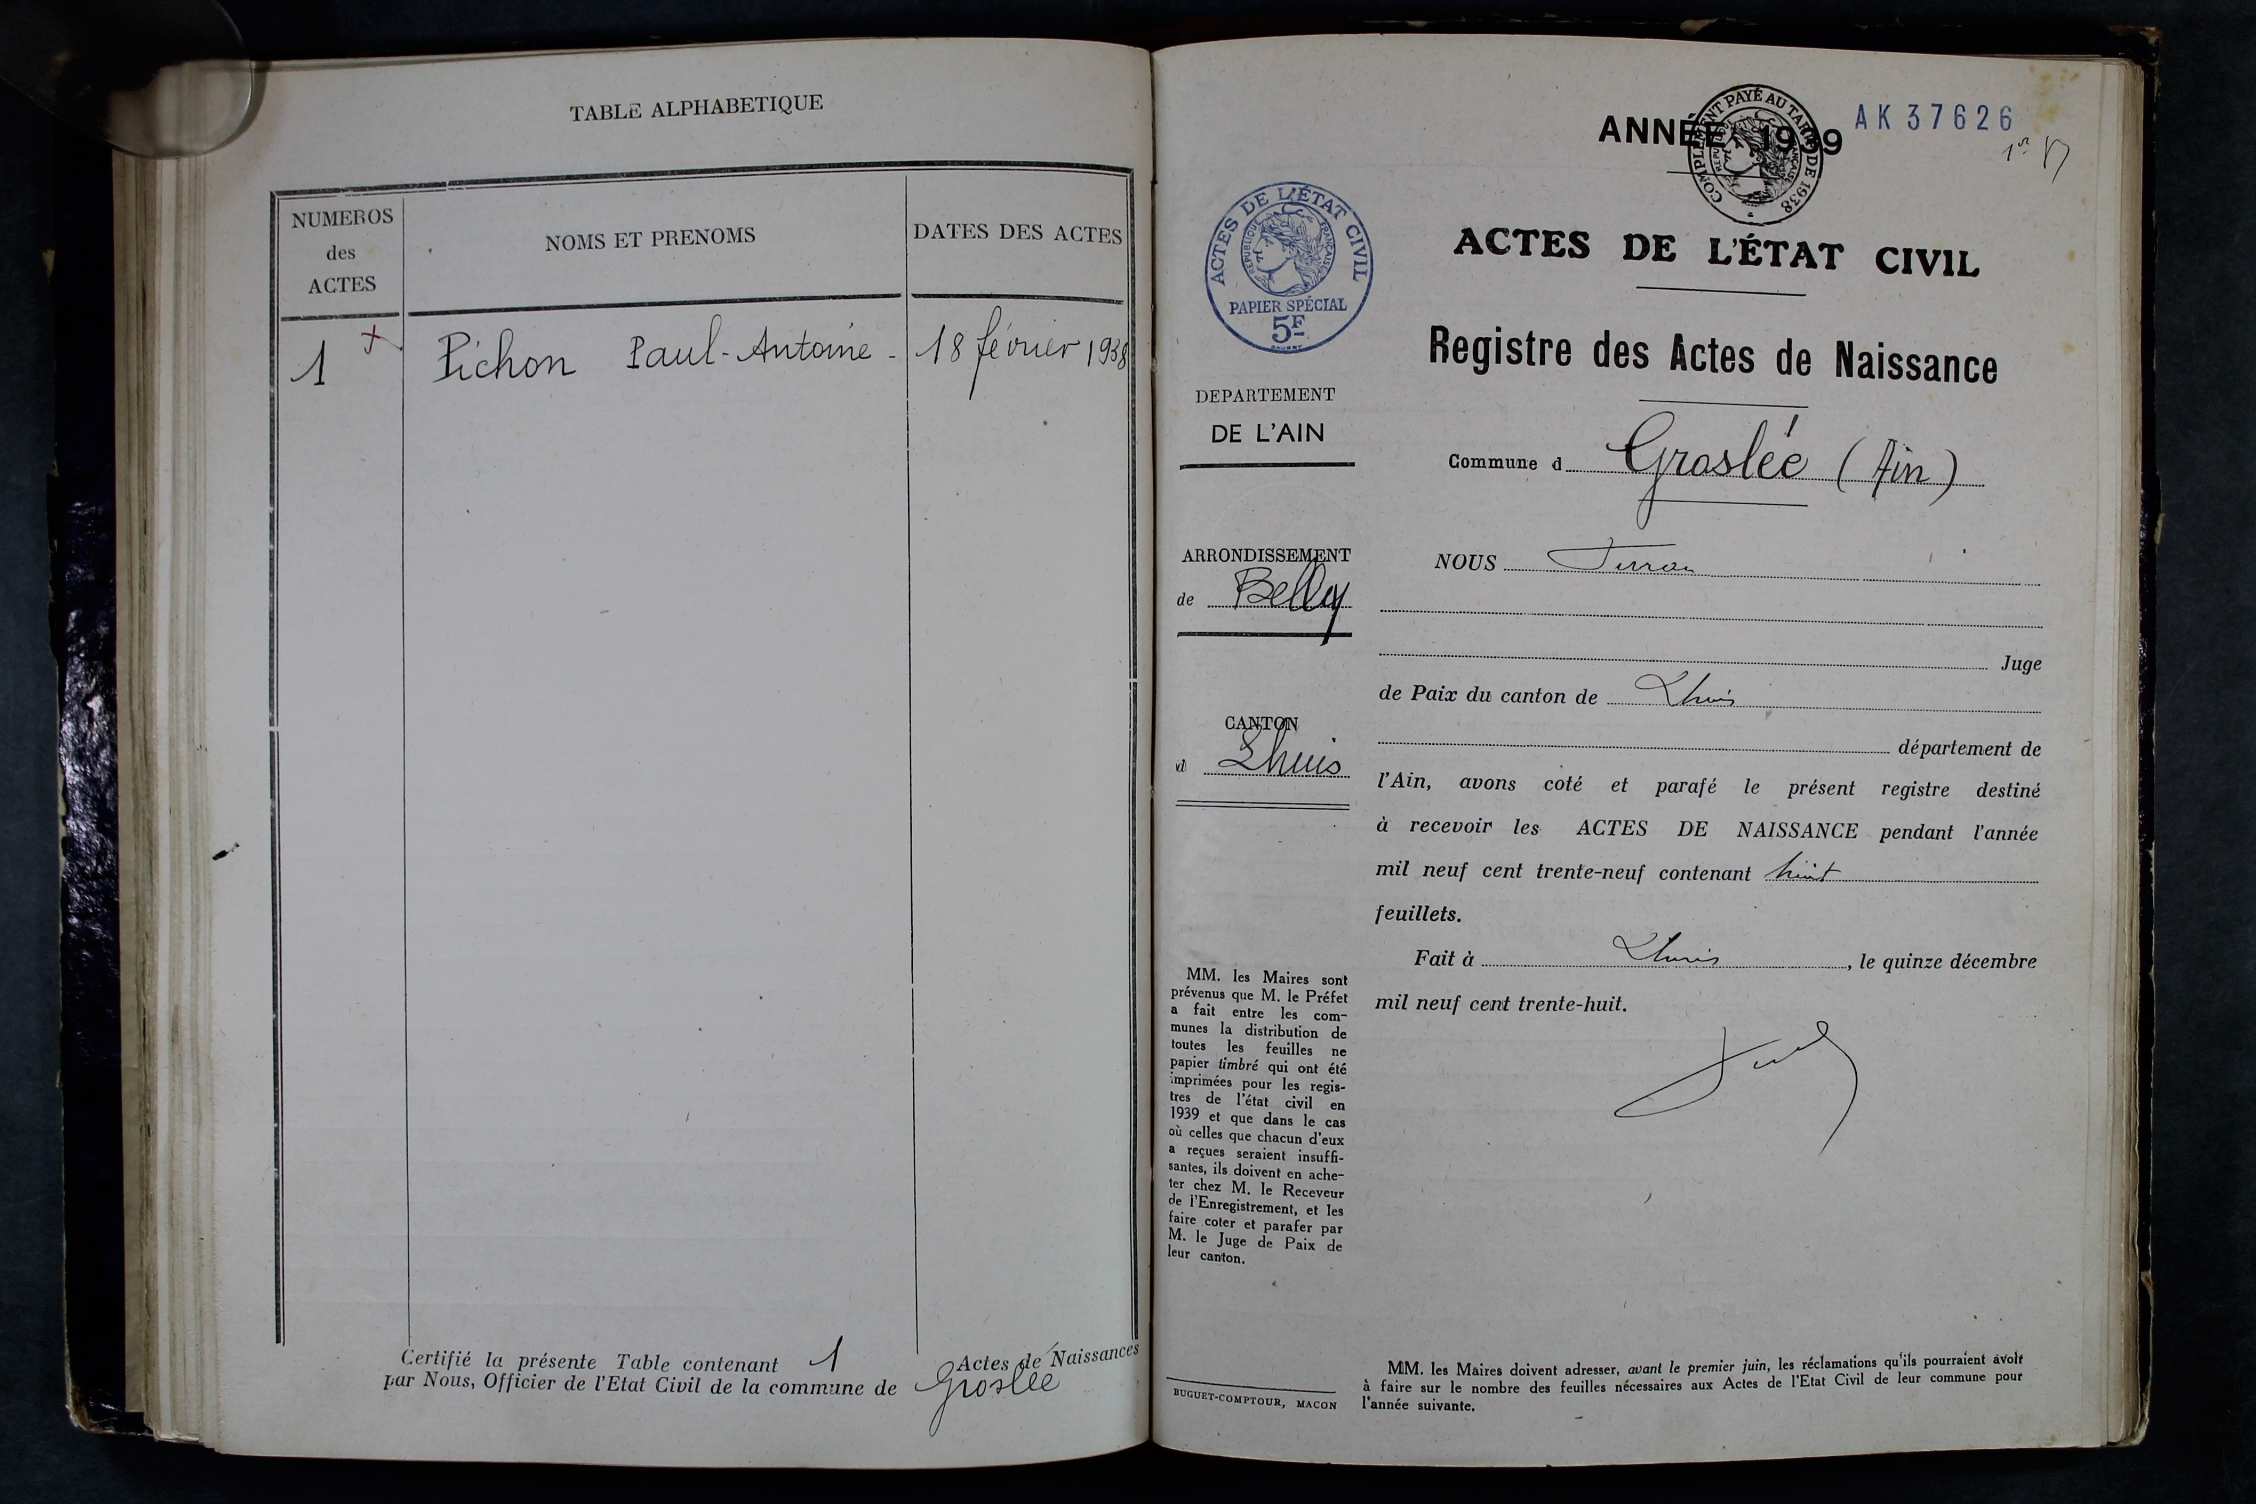 TABLE ALPHABETIQUE
NUMEROS
des
ACTES
NOMS ET PRENOMS
DATES DES ACTES
1 Pichon Paul-Antoine - 18 février 1938
Certifié la présente Table contenant 1 Actes de Naissances
par Nous, Officier de l'Etat Civil de la commune de Groslée
ANNÉE 1939
AK 37626
COMPLÉMENT PAYÉ AU TARIF DE 1938
ACTES DE L'ÉTAT CIVIL
RÉPUBLIQUE FRANÇAISE
PAPIER SPÉCIAL
5F
DEPARTEMENT
DE L'AIN
ARRONDISSEMENT
de Belley
CANTON
d Lhuis
MM. les Maires sont
prévenus que M. le Préfet
a fait entre les com-
munes la distribution de
toutes les feuilles ne
papier timbré qui ont été
imprimées pour les regis-
tres de l'état civil en
1939 et que dans le cas
où celles que chacun d'eux
a reçues seraient insuffi-
santes, ils doivent en ache-
ter chez M. le Receveur
de l'Enregistrement, et les
faire coter et parafer par
M. le Juge de Paix de
leur canton.
BUGUET-COMPTOUR, MACON
ACTES DE L'ÉTAT CIVIL
Registre des Actes de Naissance
Commune d Groslée (Ain)
NOUS
Juge
de Paix du canton de Lhuis
département de
l'Ain, avons coté et parafé le présent registre destiné
à recevoir les ACTES DE NAISSANCE pendant l'année
mil neuf cent trente-neuf contenant huit
feuillets.
Fait à Lhuis, le quinze décembre
mil neuf cent trente-huit.
MM. les Maires doivent adresser, avant le premier juin, les réclamations qu'ils pourraient avoir
à faire sur le nombre des feuilles nécessaires aux Actes de l'Etat Civil de leur commune pour
l'année suivante.